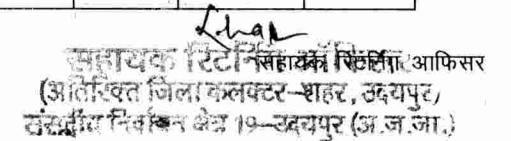 सहायक रिटर्निंग आफिसर
(अतिरिक्त जिला कलक्टर-शहर, उदयपुर)
संसदीय निर्वाचन क्षेत्र 19-उदयपुर (अ.ज.जा.)